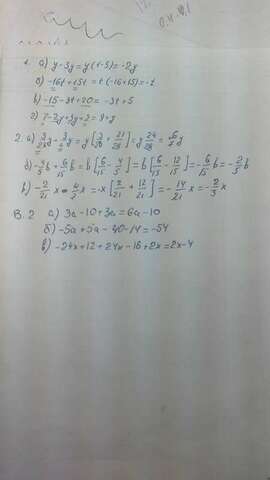 1. а) y-3y=y(1-3)=-2y
б) -16t+15t=t(-16+15)=-t
в) -15-3t+20=-3t+5
г) 7-2y+3y+2=9+y
2. а) 3/28 y + 3/4 y = y[3/28 + 21/28] = y 24/28 = 6/7 y
б) -4/5 b + 6/15 b = b[6/15 - 4/5] = b[6/15 - 12/15] = -6/15 b = -2/5 b
в) -2/21 x - 4/7 x = -x[2/21 + 12/21] = -14/21 x = -2/3 x
В. 2 а) 3a-10+3a=6a-10
б) -5a+5a-40-14=-54
в) -24x+12+24x-16+2x=2x-4